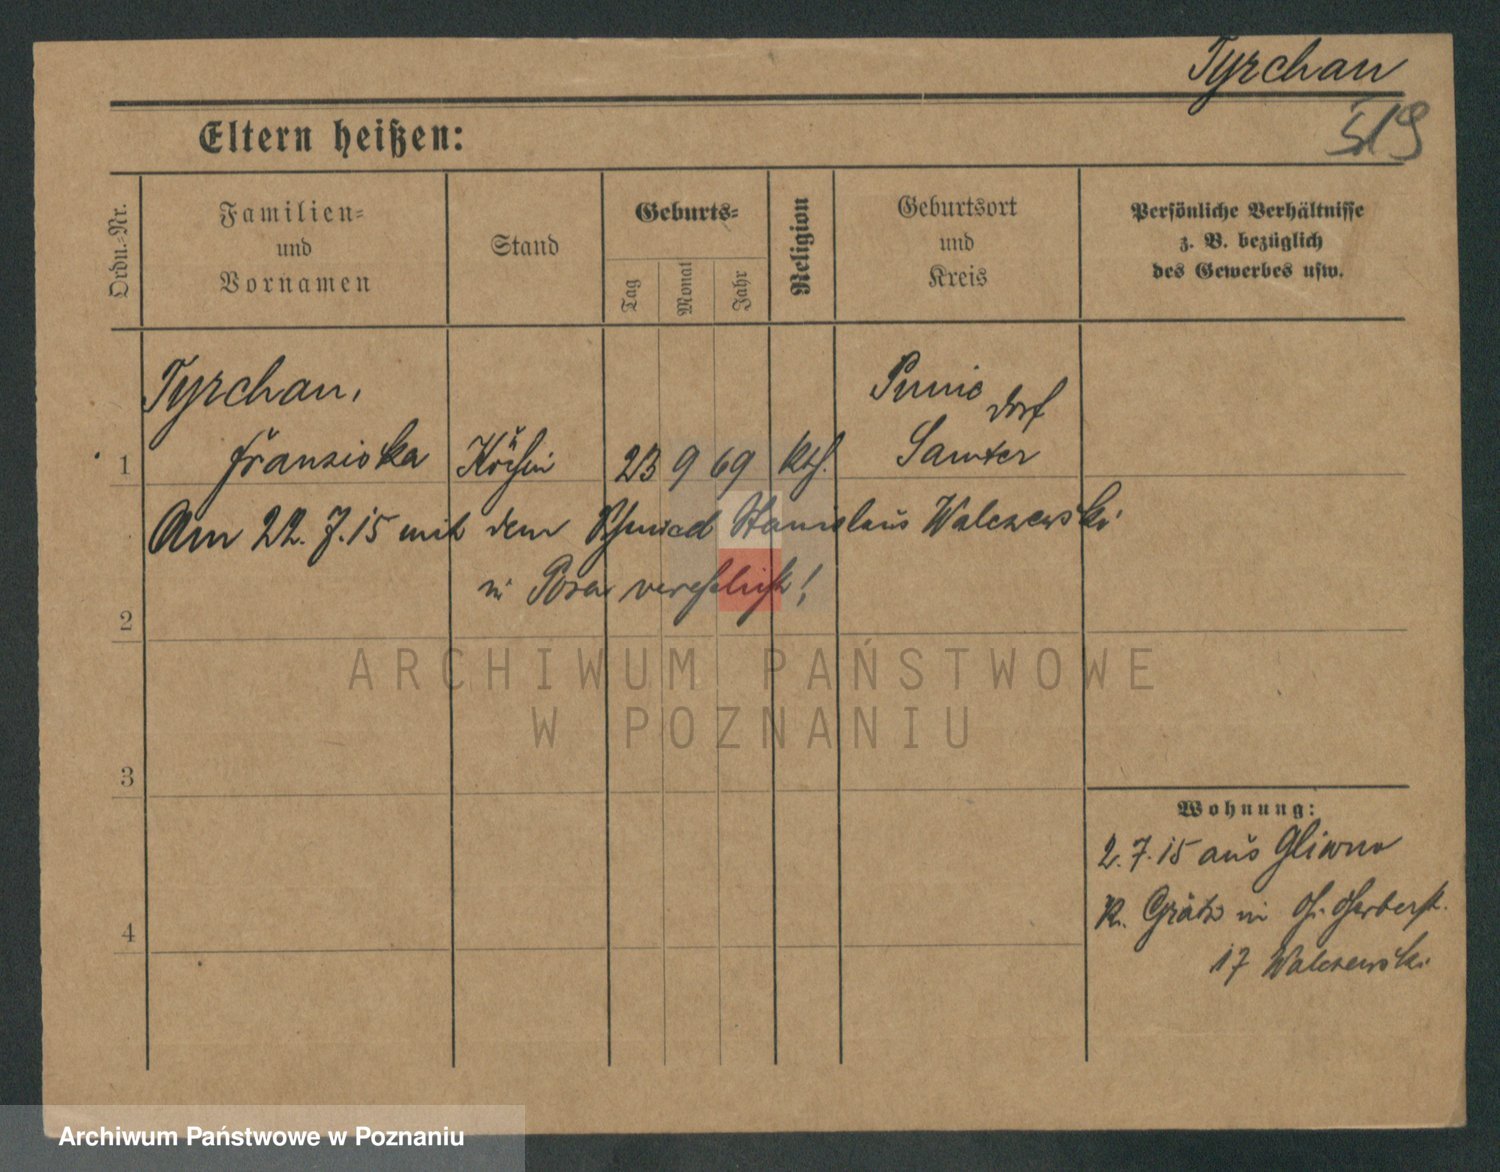 Tyrchan
Eltern heißen:
519
Ordn.-Nr.
Familien-
und
Vornamen
Stand
Geburts-
Tag
Monat
Jahr
Religion
Geburtsort
und
Kreis
Persönliche Verhältnisse
z. B. bezüglich
des Gewerbes usw.
Tyrchan,
1 Franziska Köchin 23 9 69 kth.
dorf
Samter
Am 22. 7. 15 mit dem Schmied Stanislaus Walczewski
in Posen verehelicht!
2
ARCHIWUM PAŃSTWOWE
W POZNANIU
3
Wohnung:
2. 7. 15 aus Gliwno
K. Grätz in
17 Walczewski
4
Archiwum Państwowe w Poznaniu